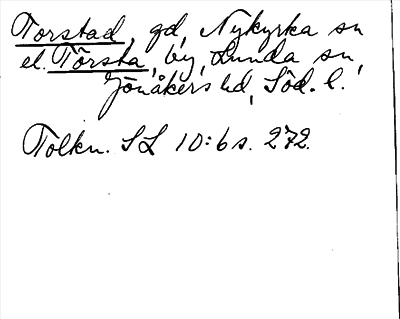 Torstad, gd, Nykyrka sn
el. Torsta, by, Lunda sn,
Jönåkers hd, Söd. l.
Tolkn. SL 10:6 s. 272.